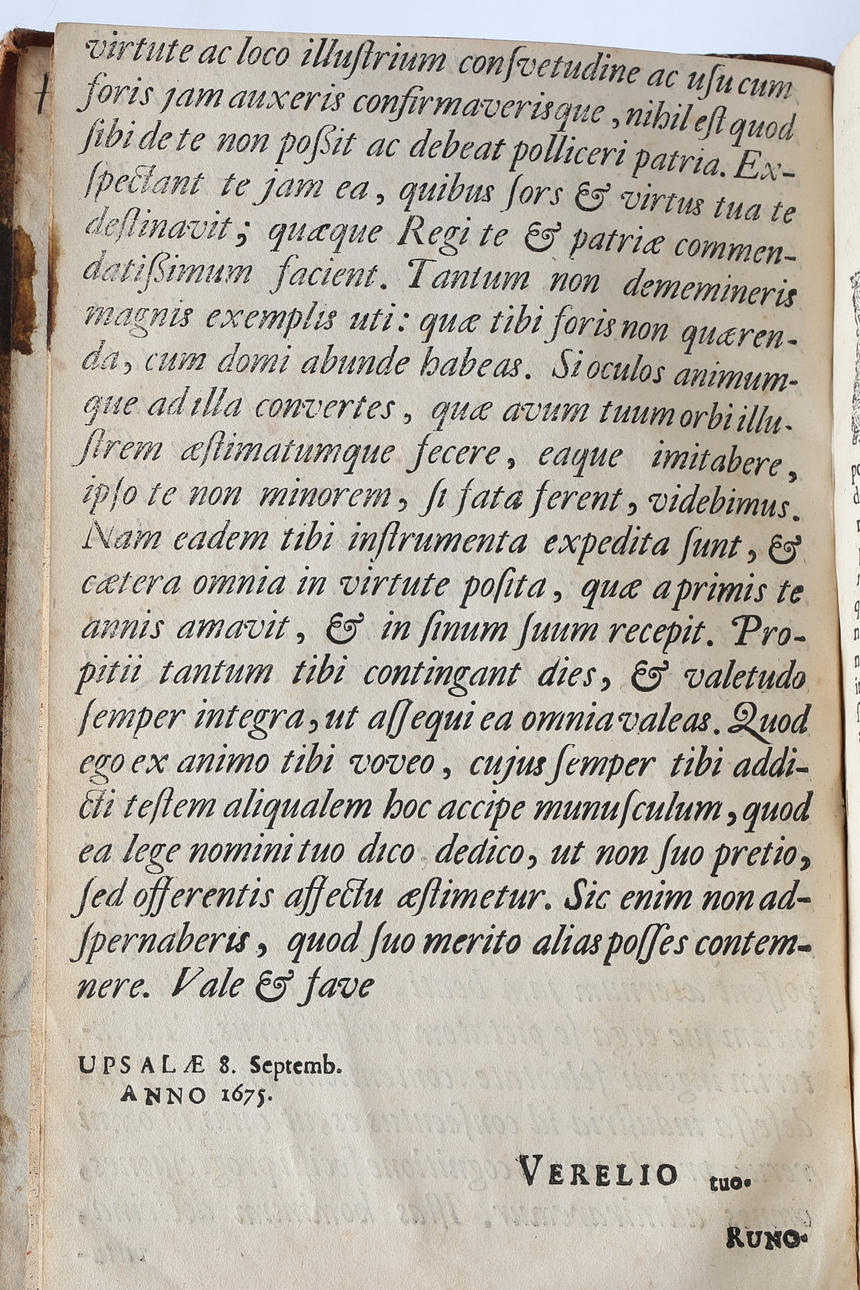 virtute ac loco illuſtrium conſvetudine ac uſu cum
foris jam auxeris confirmaverisque, nihil eſt quod
ſibi de te non poßit ac debeat polliceri patria. Ex-
ſpectant te jam ea, quibus ſors & virtus tua te
deſtinavit; quæque Regi te & patriæ commen-
datißimum facient. Tantum non dememineris
magnis exemplis uti: quæ tibi foris non quæren-
da, cum domi abunde habeas. Si oculos animum-
que ad illa convertes, quæ avum tuum orbi illu-
ſtrem æſtimatumque fecere, eaque imitabere,
ipſo te non minorem, ſi fata ferent, videbimus.
Nam eadem tibi inſtrumenta expedita ſunt, &
cætera omnia in virtute poſita, quæ a primis te
annis amavit, & in ſinum ſuum recepit. Pro-
pitii tantum tibi contingant dies, & valetudo
ſemper integra, ut aſſequi ea omnia valeas. Quod
ego ex animo tibi voveo, cujus ſemper tibi addi-
cti teſtem aliqualem hoc accipe munuſculum, quod
ea lege nomini tuo dico dedico, ut non ſuo pretio,
ſed offerentis affectu æſtimetur. Sic enim non ad-
ſpernaberis, quod ſuo merito alias poſſes contem-
nere. Vale & fave
UPSALÆ 8. Septemb.
ANNO 1675.
VERELIO tuo.
RUNO-